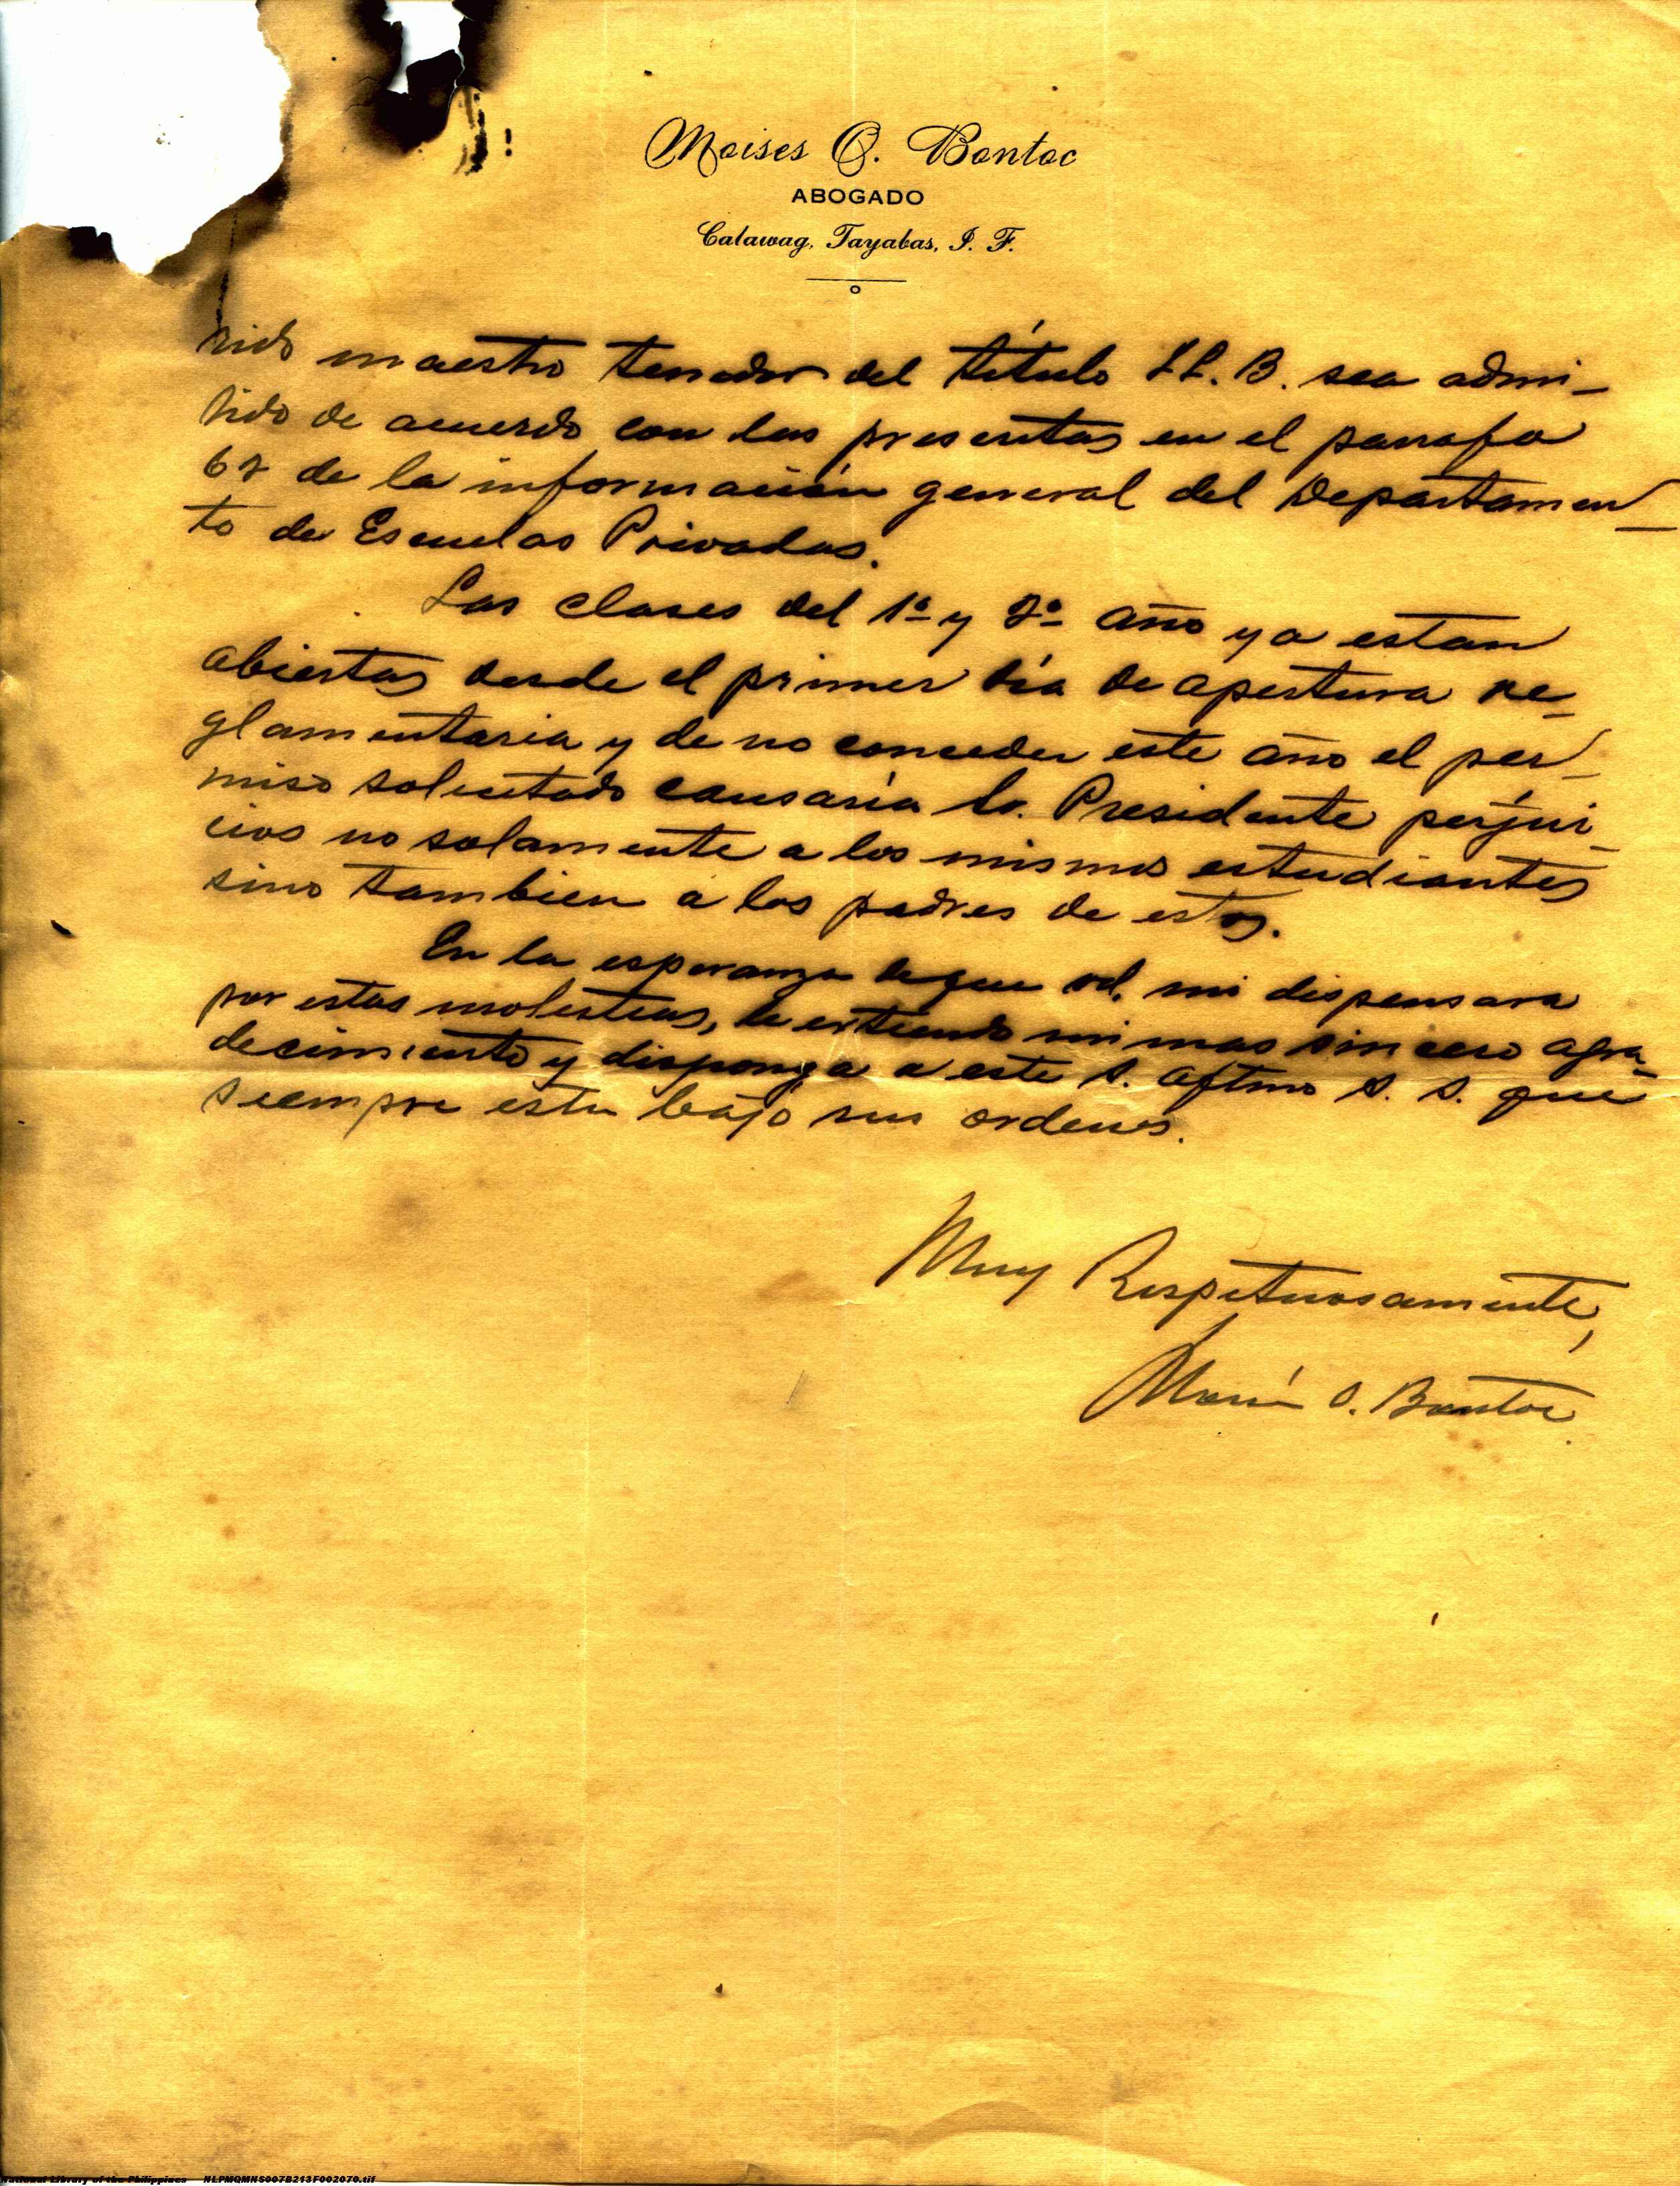 Moises O. Bontoc
ABOGADO
Calawag, Tayabas, I. F.
rido maestro tenedor del título LL. B. sea admi-
tido de acuerdo con las presentas en el parrafo
67 de la información general del Departamen-
to de Escuelas Privadas.
Las clases del 1º y 2º año ya estan
abiertas desde el primer día de apertura re-
glamentaria y de no conceder este año el per-
miso solicitado causaría Sr. Presidente perjui-
cios no solamente a los mismos estudiantes
sino tambien a los padres de estos.
En la esperanza de que Vd. mi dispensara
por estas molestias, le extiendo mi mas sincero agra-
decimiento y disponga a este s. aftmo s. s. que
siempre esta bajo sus ordenes.
Muy Respetuosamente,
O. Bontoc
National Library of the Philippines NLPMQMNS007B213F002070.tif